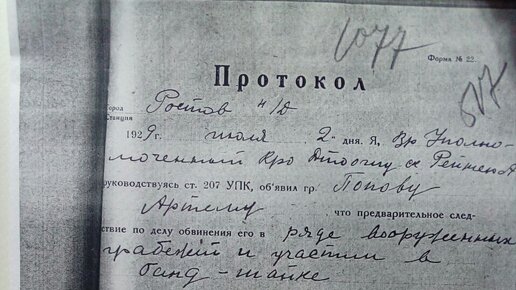 1077
Форма № 22.
507
Протокол
Город Ростов н/Д
Станция
1929 г. июля 2 дня. Я, Вр Уполно-
моченный Кро
руководствуясь ст. 207 УПК, об'явил гр. Попову
Артему, что предварительное след-
ствие по делу обвинения его в ряде вооруженных
грабежей и участии в
банд-шайке